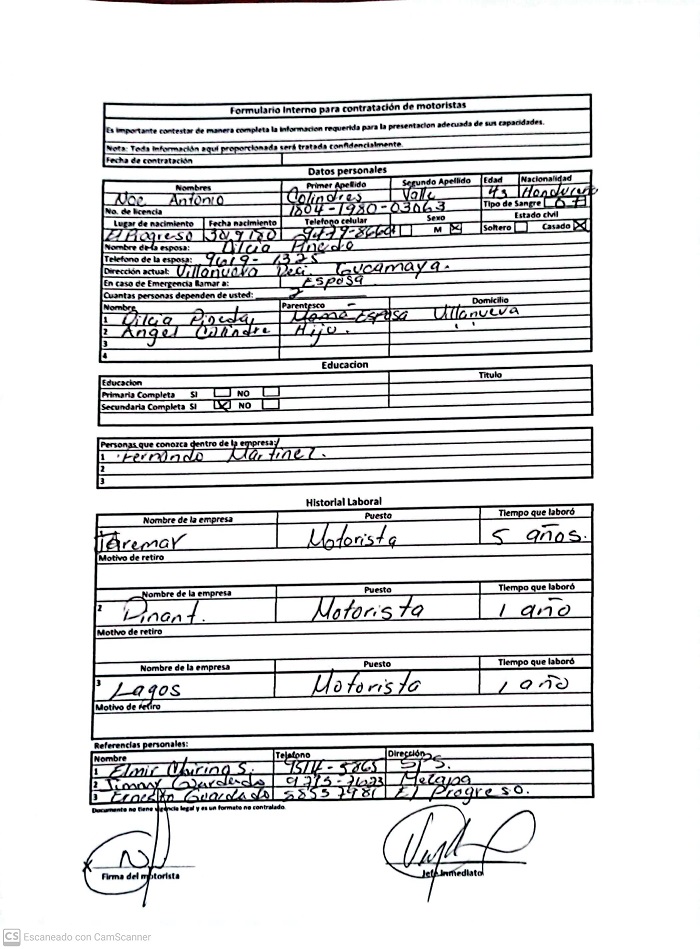 Formulario Interno para contratación de motoristas
Es importante contestar de manera completa la informacion requerida para la presentacion adecuada de sus capacidades.
Nota: Toda información aquí proporcionada será tratada confidencialmente.
Fecha de contratación
Datos personales
Nombres Primer Apellido Segundo Apellido Edad Nacionalidad
Noe Antonio Colindres Valle 43 Hondureño
No. de licencia 1804-1980-03063 Tipo de Sangre
Lugar de nacimiento Fecha nacimiento Telefono celular Sexo Estado civil
El Progreso 30/9/80 M Soltero Casado
Nombre de la esposa: Dilcia Pineda
Telefono de la esposa: 9619-1325
Dirección actual: Villanueva Guacamaya.
En caso de Emergencia llamar a: Esposa
Cuantas personas dependen de usted: 2
Nombre Parentesco Domicilio
1 Dilcia Pineda Esposa Villanueva
2 Angel Colindre Hijo. ''
3
4
Educacion
Educacion Titulo
Primaria Completa SI NO
Secundaria Completa SI NO
Personas que conozca dentro de la empresa:
1 Fernando Martinez.
2
3
Historial Laboral
Nombre de la empresa Puesto Tiempo que laboró
Motorista 5 años.
Motivo de retiro
Nombre de la empresa Puesto Tiempo que laboró
2 Dinant. Motorista 1 año
Motivo de retiro
Nombre de la empresa Puesto Tiempo que laboró
3 Lagos Motorista 1 año
Motivo de retiro
Referencias personales:
Nombre Telefono Dirección
1 Elmir 9514-5865 SPS.
2 Guardado Metapa
3 Guardado El Progreso.
Documento no tiene vigencia legal y es un formato no controlado.
Firma del motorista Jefe Inmediato
CS Escaneado con CamScanner